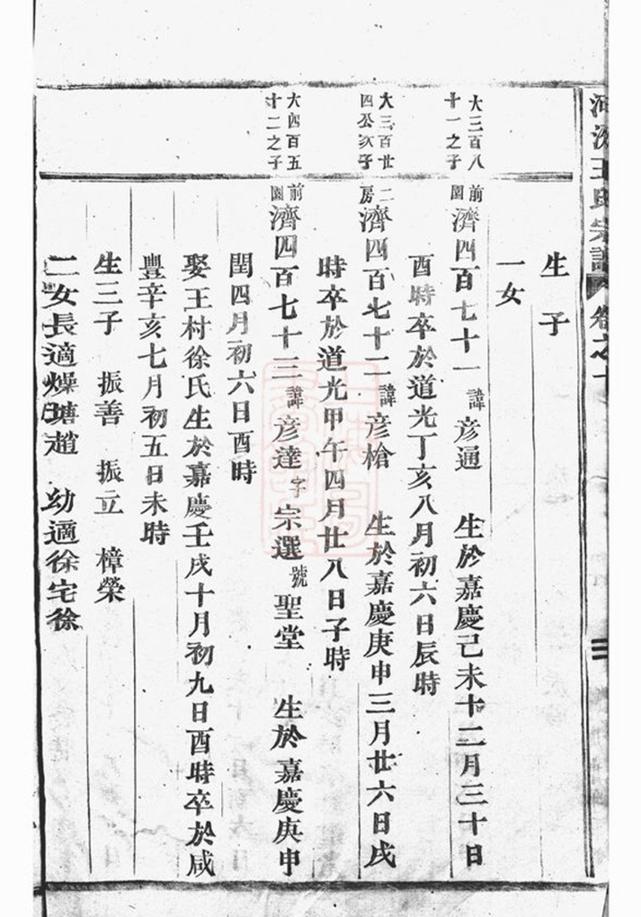 王氏宗譜 卷之十
三
生子
一女
大三百八
十一之子
前園 濟四百七十一 諱彦通 生於嘉慶己未十二月三十日
酉時卒於道光丁亥八月初六日辰時
大三百廿
四公次子
二房 濟四百七十二 諱彦槍 生於嘉慶庚申三月廿六日戌
時卒於道光甲午四月廿八日子時
大四百五
十二之子
前園 濟四百七十三 諱彦達 字宗選 號聖堂 生於嘉慶庚申
閏四月初六日酉時
娶王村徐氏生於嘉慶壬戌十月初九日酉時卒於咸
豐辛亥七月初五日未時
生三子 振善 振立 樟榮
二女長適燥塘趙 幼適徐宅徐